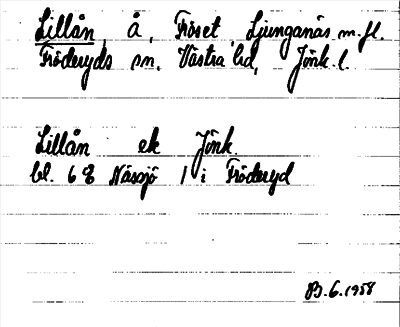 Lillån, å, Fröset, Ljunganäs m.fl.
Fröderyds sn. Västra hd, Jönk. l.
Lillån ek Jönk.
bl. 68 Nässjö 1 i Fröderyd
B. G. 1958